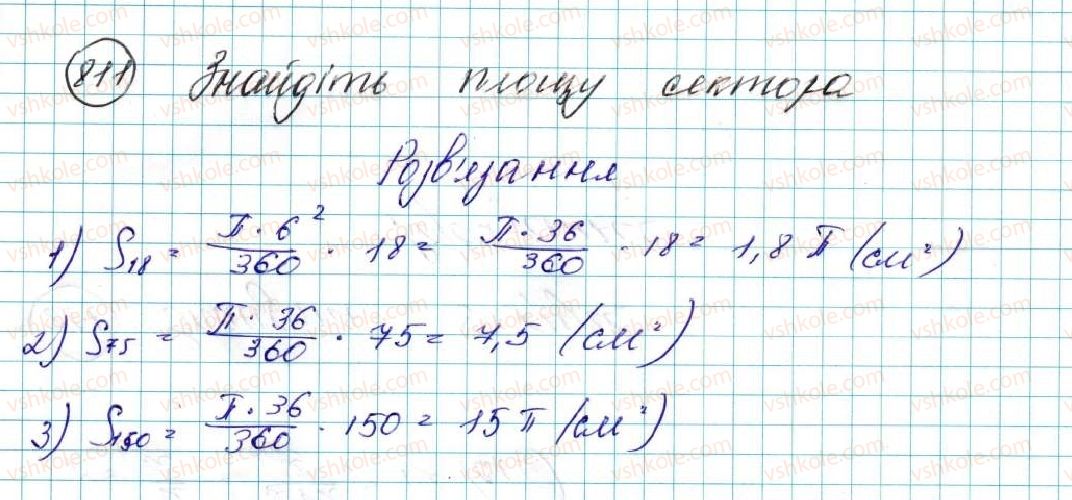 811 Знайдіть площу сектора
Розв'язання
1) S₁₈ = П·6²/360 · 18 = П·36/360 · 18 = 1,8 П (см²)
2) S₇₅ = П·36/360 · 75 = 7,5 (см²)
3) S₁₅₀ = П·36/360 · 150 = 15 П (см²)